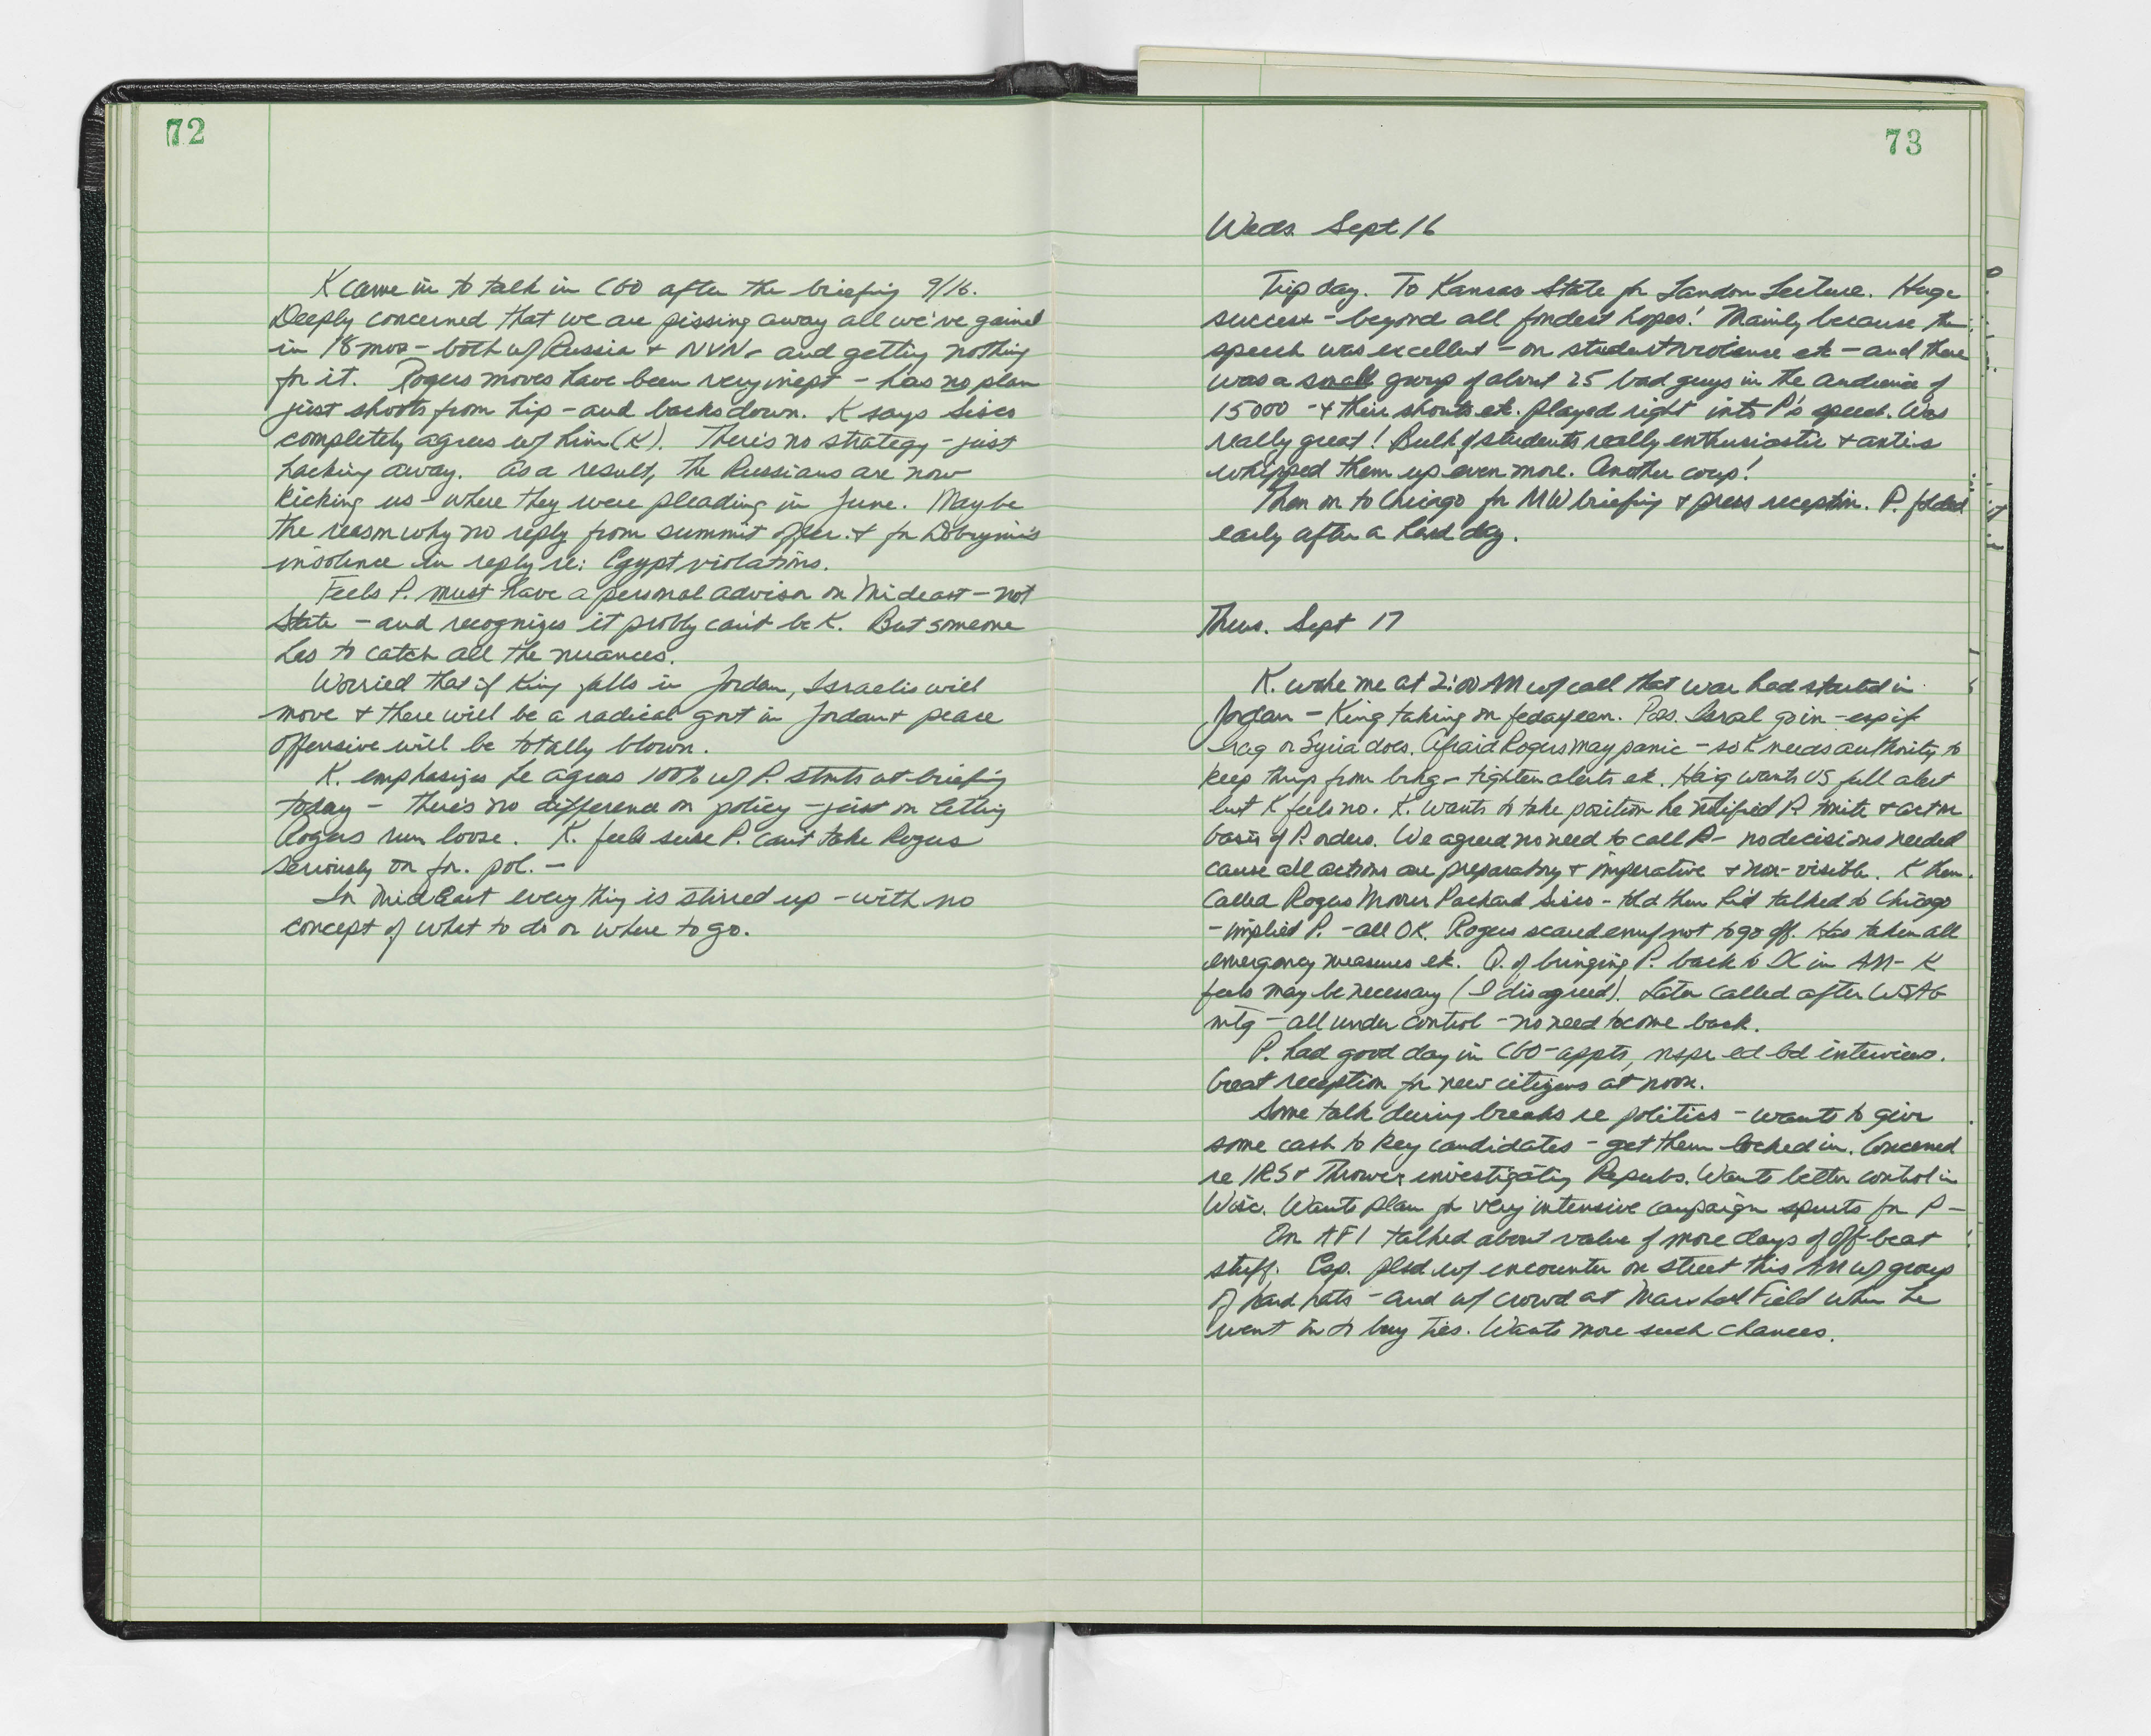 72
K came in to talk in CGO after the briefing 9/16.
Deeply concerned that we are pissing away all we've gained
in 18 mos - both w/ Russia + NVN - and getting nothing
for it. Rogers moves have been very inept - has no plan
just shoots from hip - and backs down. K says Sisco
completely agrees w/ him (K). There's no strategy - just
hacking away. As a result, the Russians are now
kicking us - where they were pleading in June. Maybe
the reason why no reply from summit offer. + for Dobrynin's
insolence in reply re: Egypt violations.
Feels P. must have a personal advisor on Mideast - not
State - and recognizes it probly can't be K. But someone
has to catch all the nuances.
Worried that if King falls in Jordan, Israelis will
move + there will be a radical govt in Jordan + peace
offensive will be totally blown.
K. emphasizes he agrees 100% w/ P. stmts at briefing
today - there's no difference on policy - just on letting
Rogers run loose. K. feels sure P. can't take Rogers
seriously on for. pol. -
In Mid East everything is stirred up - with no
concept of what to do or where to go.
73
Weds. Sept 16
Trip day. To Kansas State for Landon Lecture. Huge
success - beyond all fondest hopes! Mainly because the
speech was excellent - on student violence etc - and there
was a small group of about 25 bad guys in the audience of
15000 - + their shouts etc. played right into P's speech. Was
really great! Bulk of students really enthusiastic + antis
whipped them up even more. Another coup!
Then on to Chicago for MW briefing + press reception. P. folded
early after a hard day.
Thurs. Sept 17
K. woke me at 2:00 AM w/ call that war had started in
Jordan - King taking on fedayeen. Poss. Israel go in - esp if
Iraq or Syria does. Afraid Rogers may panic - so K needs authority to
keep things from bkg - tighten alerts etc. Haig wants US full alert
but K feels no. K. wants to take position he notified P. tonite + act on
basis of P. orders. We agreed no need to call P - no decisions needed
cause all actions are preparatory + imperative + non-visible. K then
called Rogers Moorer Packard Sisco - told them he'd talked to Chicago
- implied P. - all OK. Rogers scared enuf not to go off. Has taken all
emergency measures etc. Q. of bringing P. back to DC in AM - K
feels may be necessary (I disagreed). Later called after WSAG
mtg - all under control - no need to come back.
P. had good day in CGO - appts, nspr ed bd interviews.
Great reception for new citizens at noon.
Some talk during breaks re politics - wants to give
some cash to key candidates - get them locked in. Concerned
re IRS + Thrower investigating Repubs. Wants better control in
Wisc. Wants plan for very intensive campaign spurts for P -
On AF1 talked about value of more days of off-beat
stuff. Esp. plsd w/ encounter on street this AM w/ group
of hard hats - and w/ crowd at Marshall Field when he
went in to buy ties. Wants more such chances.